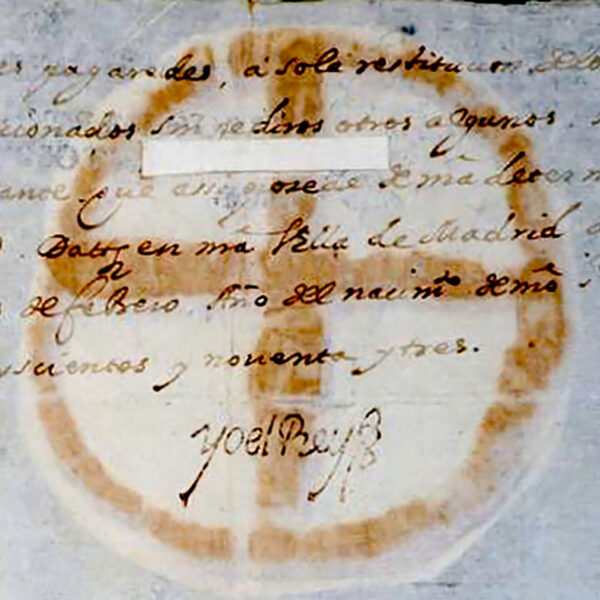 pagaredes, a sola restitucion
cionados sin pediros otros algunos.
que assi procede de mã determ
Datt en mã Villa de Madrid
de febrero. Año del nacimto de nrõ
scientos y noventa y tres.
Yo el Rey